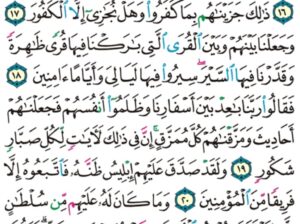 ﴿١٦﴾ ذَٰلِكَ جَزَيْنَٰهُم بِمَا كَفَرُوا۟ وَهَلْ نُجَٰزِىٓ إِلَّا ٱلْكَفُورَ ﴿١٧﴾
وَجَعَلْنَا بَيْنَهُمْ وَبَيْنَ ٱلْقُرَى ٱلَّتِى بَٰرَكْنَا فِيهَا قُرًى ظَٰهِرَةً
وَقَدَّرْنَا فِيهَا ٱلسَّيْرَ سِيرُوا۟ فِيهَا لَيَالِىَ وَأَيَّامًا ءَامِنِينَ ﴿١٨﴾
فَقَالُوا۟ رَبَّنَا بَٰعِدْ بَيْنَ أَسْفَارِنَا وَظَلَمُوٓا۟ أَنفُسَهُمْ فَجَعَلْنَٰهُمْ
أَحَادِيثَ وَمَزَّقْنَٰهُمْ كُلَّ مُمَزَّقٍ إِنَّ فِى ذَٰلِكَ لَءَايَٰتٍ لِّكُلِّ صَبَّارٍ
شَكُورٍ ﴿١٩﴾ وَلَقَدْ صَدَّقَ عَلَيْهِمْ إِبْلِيسُ ظَنَّهُۥ فَٱتَّبَعُوهُ إِلَّا
فَرِيقًا مِّنَ ٱلْمُؤْمِنِينَ ﴿٢٠﴾ وَمَا كَانَ لَهُۥ عَلَيْهِم مِّن سُلْطَٰنٍ